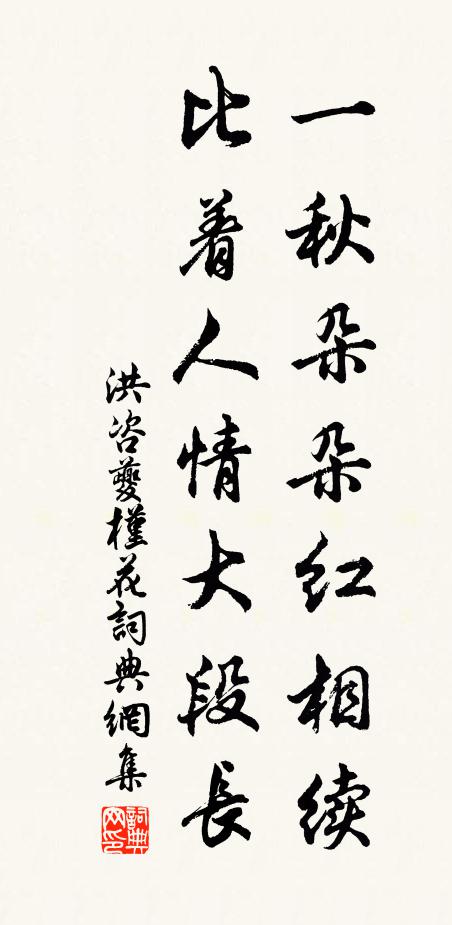 一秋朵朵红相续
比着人情大段長
洪咨夔槿花詞典網集
詞典网印